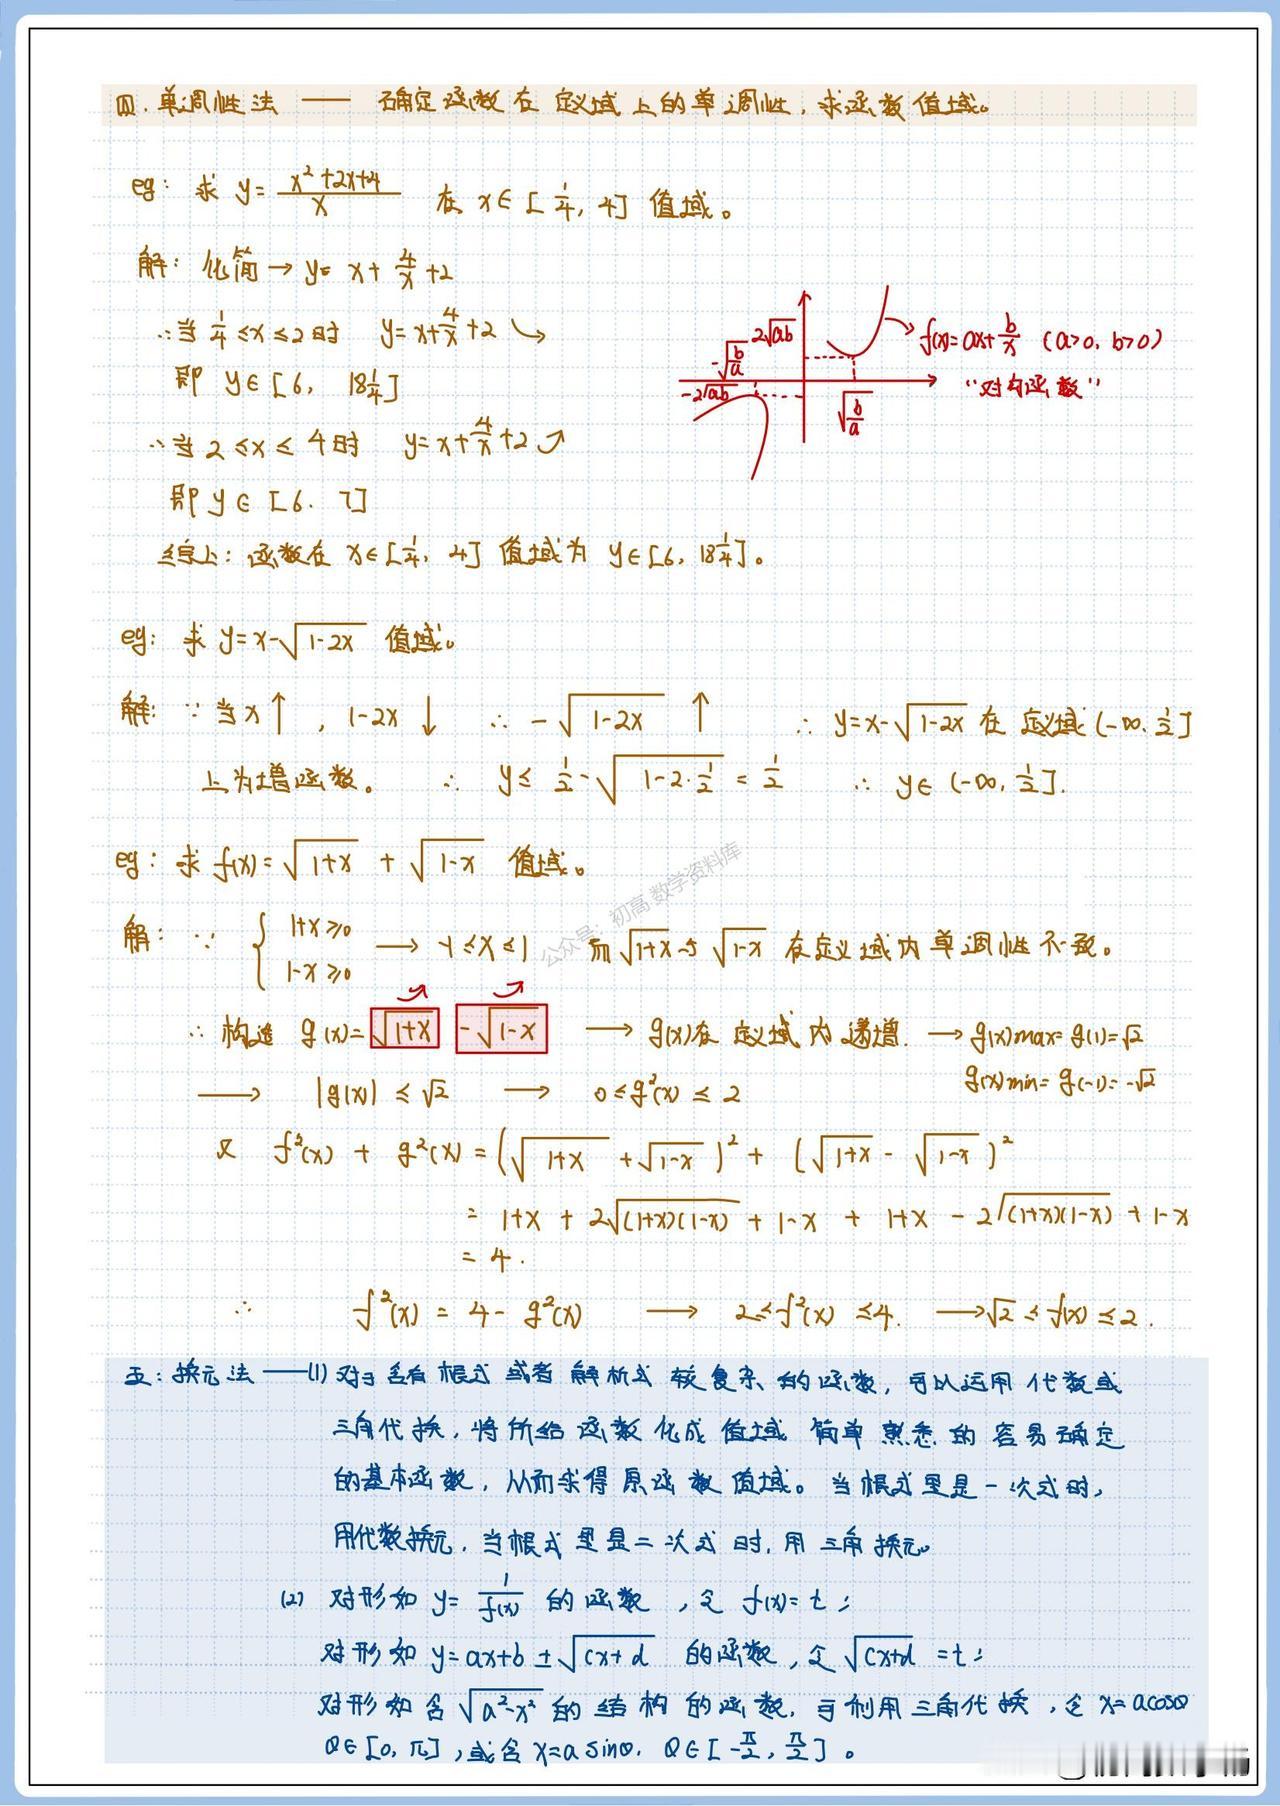 四.单调性法 —— 确定函数在定义域上的单调性,求函数值域。
eg: 求 y= (x²+2x+4)/x 在 x∈[1/4, 4] 值域。
解: 化简→ y= x+ 4/x +2
∴当 1/4 ≤x≤2时 y=x+4/x+2 ↘
即 y∈[6, 18 1/4]
∴当 2≤x≤4时 y=x+4/x+2 ↗
即 y∈[6. 7]
综上: 函数在 x∈[1/4, 4] 值域为 y∈[6, 18 1/4]。
2√ab
-√(b/a)
-2√ab
√(b/a)
f(x)=ax+b/x (a>0, b>0)
“对勾函数”
eg: 求 y=x-√(1-2x) 值域。
解: ∵ 当x↑, 1-2x↓ ∴ -√(1-2x) ↑ ∴ y=x-√(1-2x) 在定义域(-∞, 1/2]
上为增函数。 ∴ y≤ 1/2 -√(1-2·1/2) = 1/2 ∴ y∈(-∞, 1/2].
eg: 求 f(x)=√(1+x) + √(1-x) 值域。
解: ∵ { 1+x≥0
1-x≥0
→ -1≤x≤1 而√(1+x)与√(1-x) 在定义域内单调性不一致。
∴ 构造 g(x)=√(1+x) -√(1-x) → g(x)在定义域内递增. → g(x)max= g(1)=√2
g(x)min= g(-1)=-√2
→ |g(x)| ≤√2 → 0≤g²(x)≤2
又 f²(x) + g²(x) = (√(1+x) +√(1-x))² + (√(1+x) - √(1-x))²
= 1+x + 2√((1+x)(1-x)) + 1-x + 1+x - 2√((1+x)(1-x)) + 1-x
= 4.
∴ f²(x) = 4- g²(x) → 2≤f²(x)≤4. →√2≤f(x)≤2.
五: 换元法 ——(1) 对于含有根式或者解析式较复杂的函数, 可以运用代数或
三角代换, 将所给函数化成值域简单熟悉的容易确定
的基本函数, 从而求得原函数值域。当根式里是一次式时,
用代数换元, 当根式里是二次式时, 用三角换元。
(2) 对形如 y= 1/f(x) 的函数, 令 f(x)= t;
对形如 y=ax+b±√(cx+d) 的函数, 令√(cx+d) =t;
对形如含√(a²-x²)的结构的函数, 可利用三角代换, 令 x=acosθ
θ∈[0, π], 或令 x=a sinθ. θ∈[-π/2, π/2]。
公众号:初高数学资料库